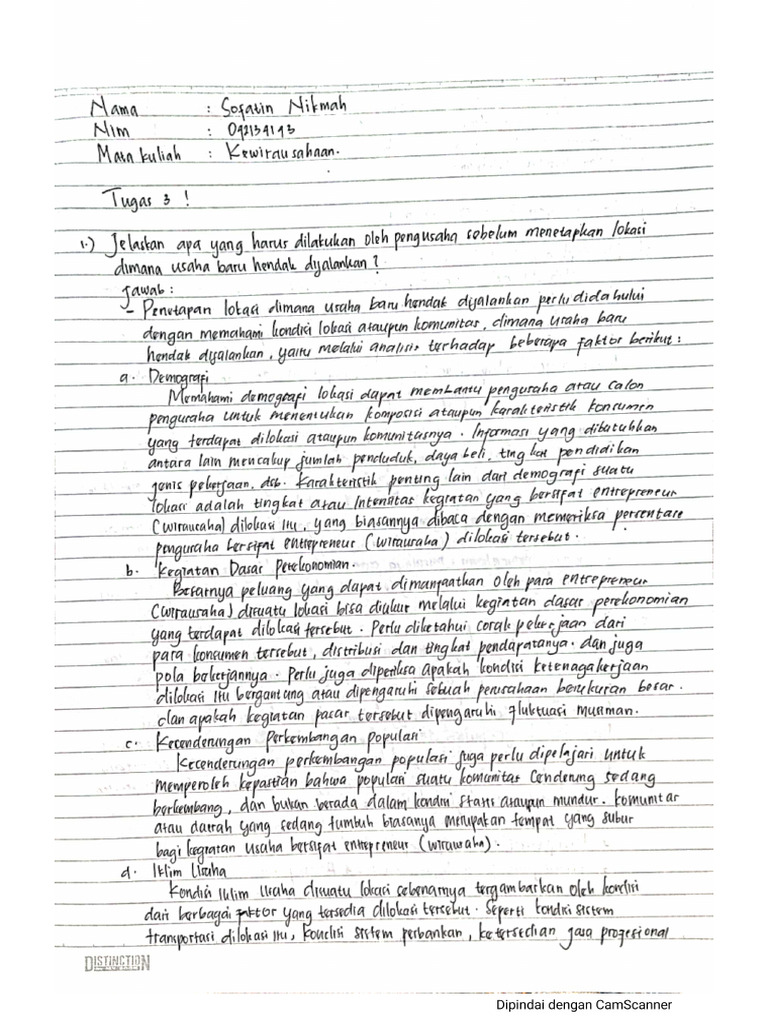 Nama : Sofatin Nikmah
Nim : 042134143
Mata kuliah : Kewirausahaan.
Tugas 3 !
1.) Jelaskan apa yang harus dilakukan oleh pengusaha sebelum menetapkan lokasi
dimana usaha baru hendak dijalankan ?
Jawab :
- Penetapan lokasi dimana usaha baru hendak dijalankan perlu didahului
dengan memahami kondisi lokasi ataupun komunitas, dimana usaha baru
hendak dijalankan, yaitu melalui analisis terhadap beberapa faktor berikut :
a. Demografi
Memahami demografi lokasi dapat membantu pengusaha atau calon
pengusaha untuk menentukan komposisi ataupun karakteristik konsumen
yang terdapat dilokasi ataupun komunitasnya. Informasi yang dibutuhkan
antara lain mencakup jumlah penduduk, daya beli, tingkat pendidikan
jenis pekerjaan, dsb. Karakteristik penting lain dari demografi suatu
lokasi adalah tingkat atau Intensitas kegiatan yang bersifat entrepreneur
(wirausaha) dilokasi itu, yang biasannya dibaca dengan memeriksa persentase
pengusaha bersifat entrepreneur (wirausaha) dilokasi tersebut.
b. Kegiatan Dasar Perekonomian.
Besarnya peluang yang dapat dimanfaatkan oleh para entrepreneur
(wirausaha) disuatu lokasi bisa diukur melalui kegintan dasar perekonomian
yang terdapat dilokasi tersebut. Perlu diketahui corak pekerjaan dari
para konsumen tersebut, distribusi dan tingkat pendapatanya. dan juga
pola bekerjannya. Perlu juga diperiksa apakah kondisi ketenagakerjaan
dilokasi itu bergantung atau dipengaruhi sebuah perusahaan berukuran besar.
dan apakah kegiatan pasar tersebut dipengaruhi fluktuasi musiman.
c. Kecenderungan Perkembangan populasi
Kecenderungan perkembangan populasi juga perlu dipelajari untuk
memperoleh kepastian bahwa populasi suatu komunitas Cenderung sedang
berkembang, dan bukan berada dalam kondisi statis ataupun mundur. Komunitas
atau daerah yang sedang tumbuh biasanya merupakan tempat yang subur
bagi kegiatan usaha bersifat entrepreneur (wirausaha).
d. Iklim Usaha
Kondisi Iklim Usaha disuatu lokasi sebenarnya tergambarkan oleh kondisi
dari berbagai faktor yang tersedia dilokasi tersebut. Seperti kondisi sistem
transportasi dilokasi itu, Kondisi sistem perbankan, ketersedian jasa profesional
DISTINCTION
Dipindai dengan CamScanner